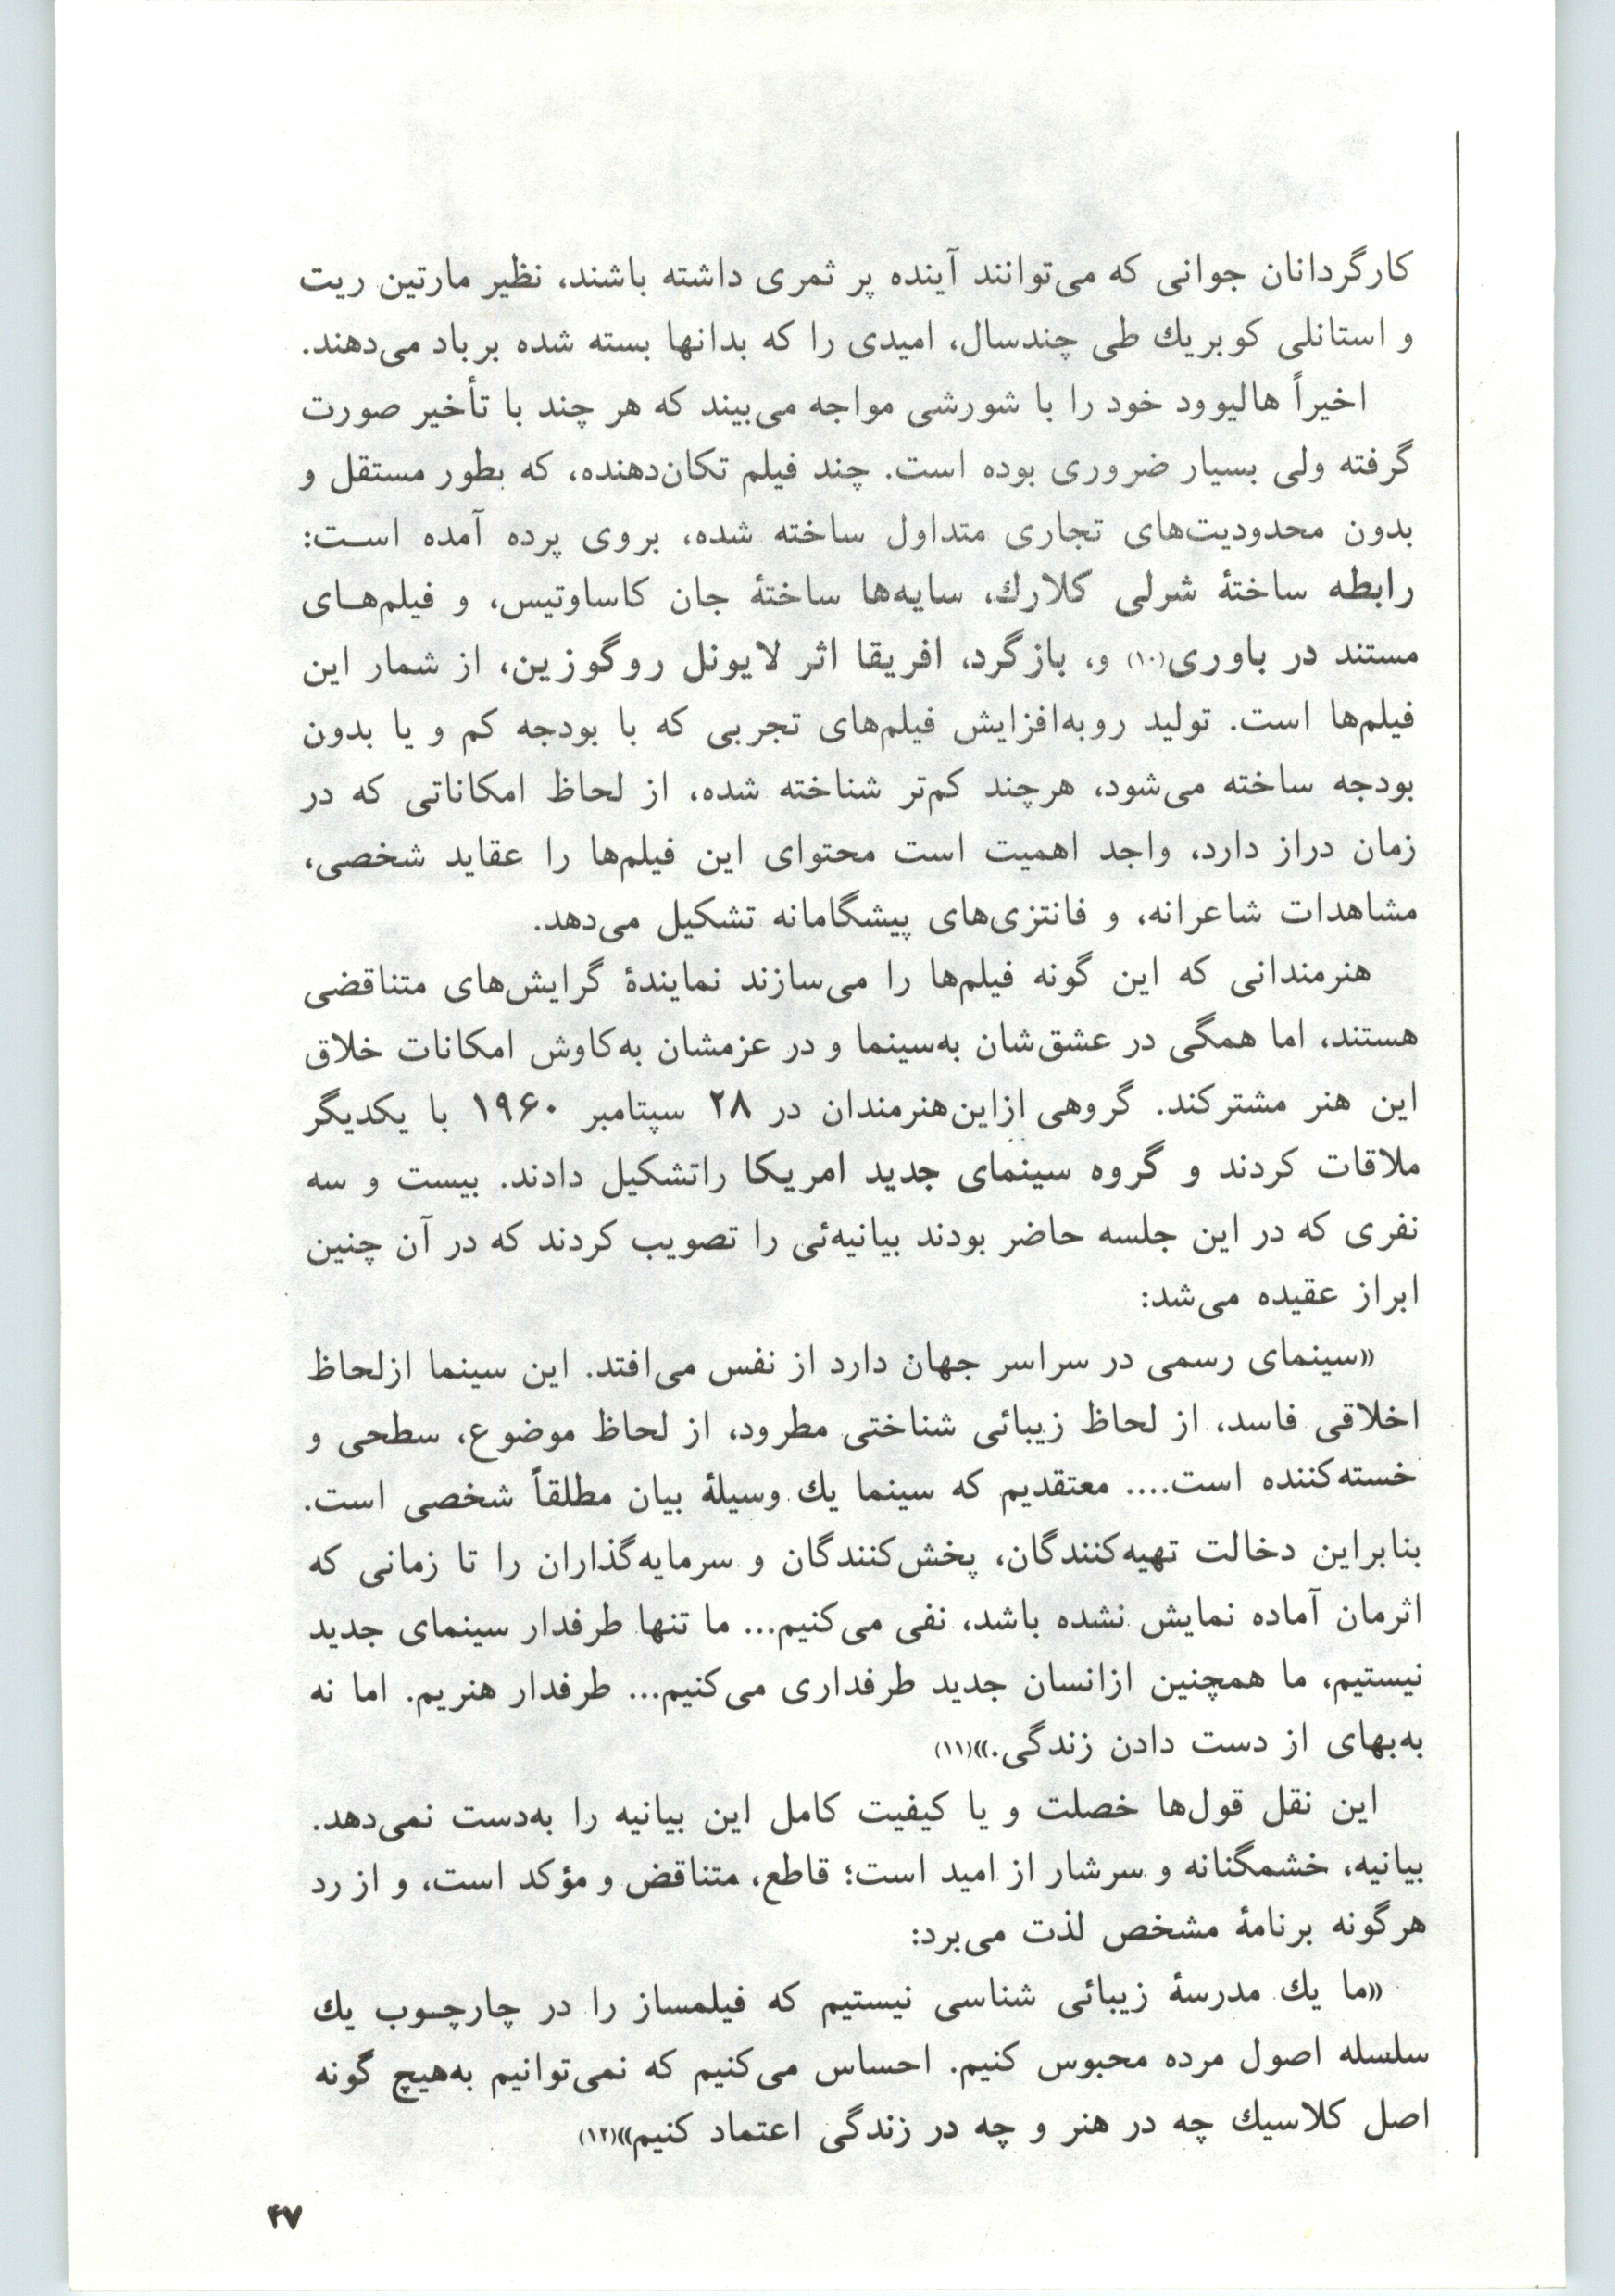 کارگردانان جوانی که می‌توانند آینده پر ثمری داشته باشند، نظیر مارتین ریت
و استانلی کوبریك طی چندسال، امیدی را که بدانها بسته شده برباد می‌دهند.
اخیراً هالیوود خود را با شورشی مواجه می‌بیند که هر چند با تأخیر صورت
گرفته ولی بسیار ضروری بوده است. چند فیلم تکان‌دهنده، که بطور مستقل و
بدون محدودیت‌های تجاری متداول ساخته شده، بروی پرده آمده است:
رابطه ساختهٔ شرلی کلارك، سایه‌ها ساختهٔ جان کاساوتیس، و فیلم‌های
مستند در باوری(۱۰) و، بازگرد، افریقا اثر لایونل روگوزین، از شمار این
فیلم‌ها است. تولید روبه‌افزایش فیلم‌های تجربی که با بودجه کم و یا بدون
بودجه ساخته می‌شود، هرچند کم‌تر شناخته شده، از لحاظ امکاناتی که در
زمان دراز دارد، واجد اهمیت است محتوای این فیلم‌ها را عقاید شخصی،
مشاهدات شاعرانه، و فانتزی‌های پیشگامانه تشکیل می‌دهد.
هنرمندانی که این گونه فیلم‌ها را می‌سازند نمایندهٔ گرایش‌های متناقضی
هستند، اما همگی در عشق‌شان به‌سینما و در عزمشان به‌کاوش امکانات خلاق
این هنر مشترکند. گروهی ازاین‌هنرمندان در ۲۸ سپتامبر ۱۹۶۰ با یکدیگر
ملاقات کردند و گروه سینمای جدید امریکا راتشکیل دادند. بیست و سه
نفری که در این جلسه حاضر بودند بیانیه‌ئی را تصویب کردند که در آن چنین
ابراز عقیده می‌شد:
«سینمای رسمی در سراسر جهان دارد از نفس می‌افتد. این سینما ازلحاظ
اخلاقی فاسد، از لحاظ زیبائی شناختی مطرود، از لحاظ موضوع، سطحی و
خسته‌کننده است.... معتقدیم که سینما یك وسیلهٔ بیان مطلقاً شخصی است.
بنابراین دخالت تهیه‌کنندگان، پخش‌کنندگان و سرمایه‌گذاران را تا زمانی که
اثرمان آماده نمایش نشده باشد، نفی می‌کنیم... ما تنها طرفدار سینمای جدید
نیستیم، ما همچنین ازانسان جدید طرفداری می‌کنیم... طرفدار هنریم. اما نه
به‌بهای از دست دادن زندگی.»(۱۱)
این نقل قول‌ها خصلت و یا کیفیت کامل این بیانیه را به‌دست نمی‌دهد.
بیانیه، خشمگنانه و سرشار از امید است؛ قاطع، متناقض و مؤکد است، و از رد
هرگونه برنامهٔ مشخص لذت می‌برد:
«ما یك مدرسهٔ زیبائی شناسی نیستیم که فیلمساز را در چارچوب یك
سلسله اصول مرده محبوس کنیم. احساس می‌کنیم که نمی‌توانیم به‌هیچ گونه
اصل کلاسیك چه در هنر و چه در زندگی اعتماد کنیم»(۱۲)
۴۷